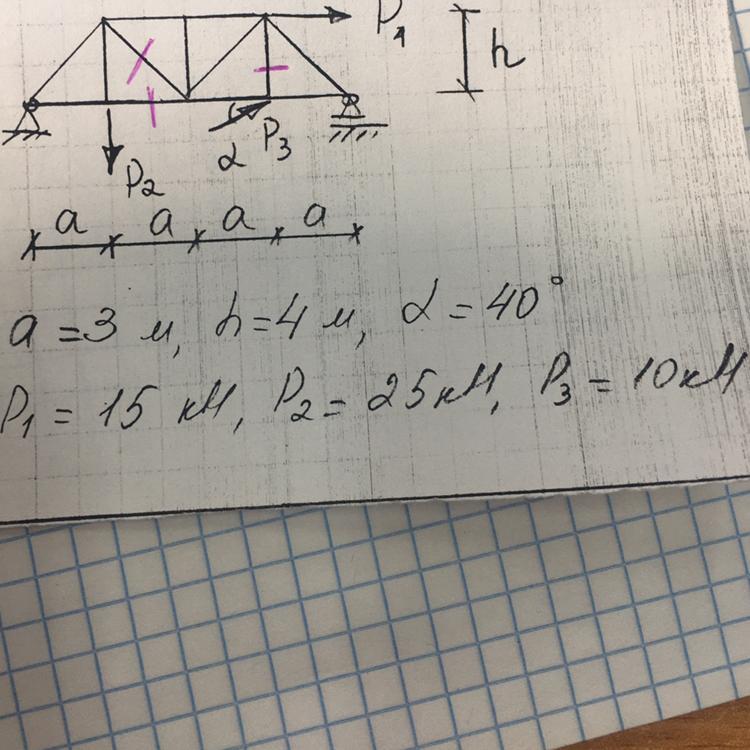 P₁
h
α P₃
P₂
a a a a
a = 3 м, h = 4 м, α = 40°
P₁ = 15 кН, P₂ = 25 кН, P₃ = 10 кН